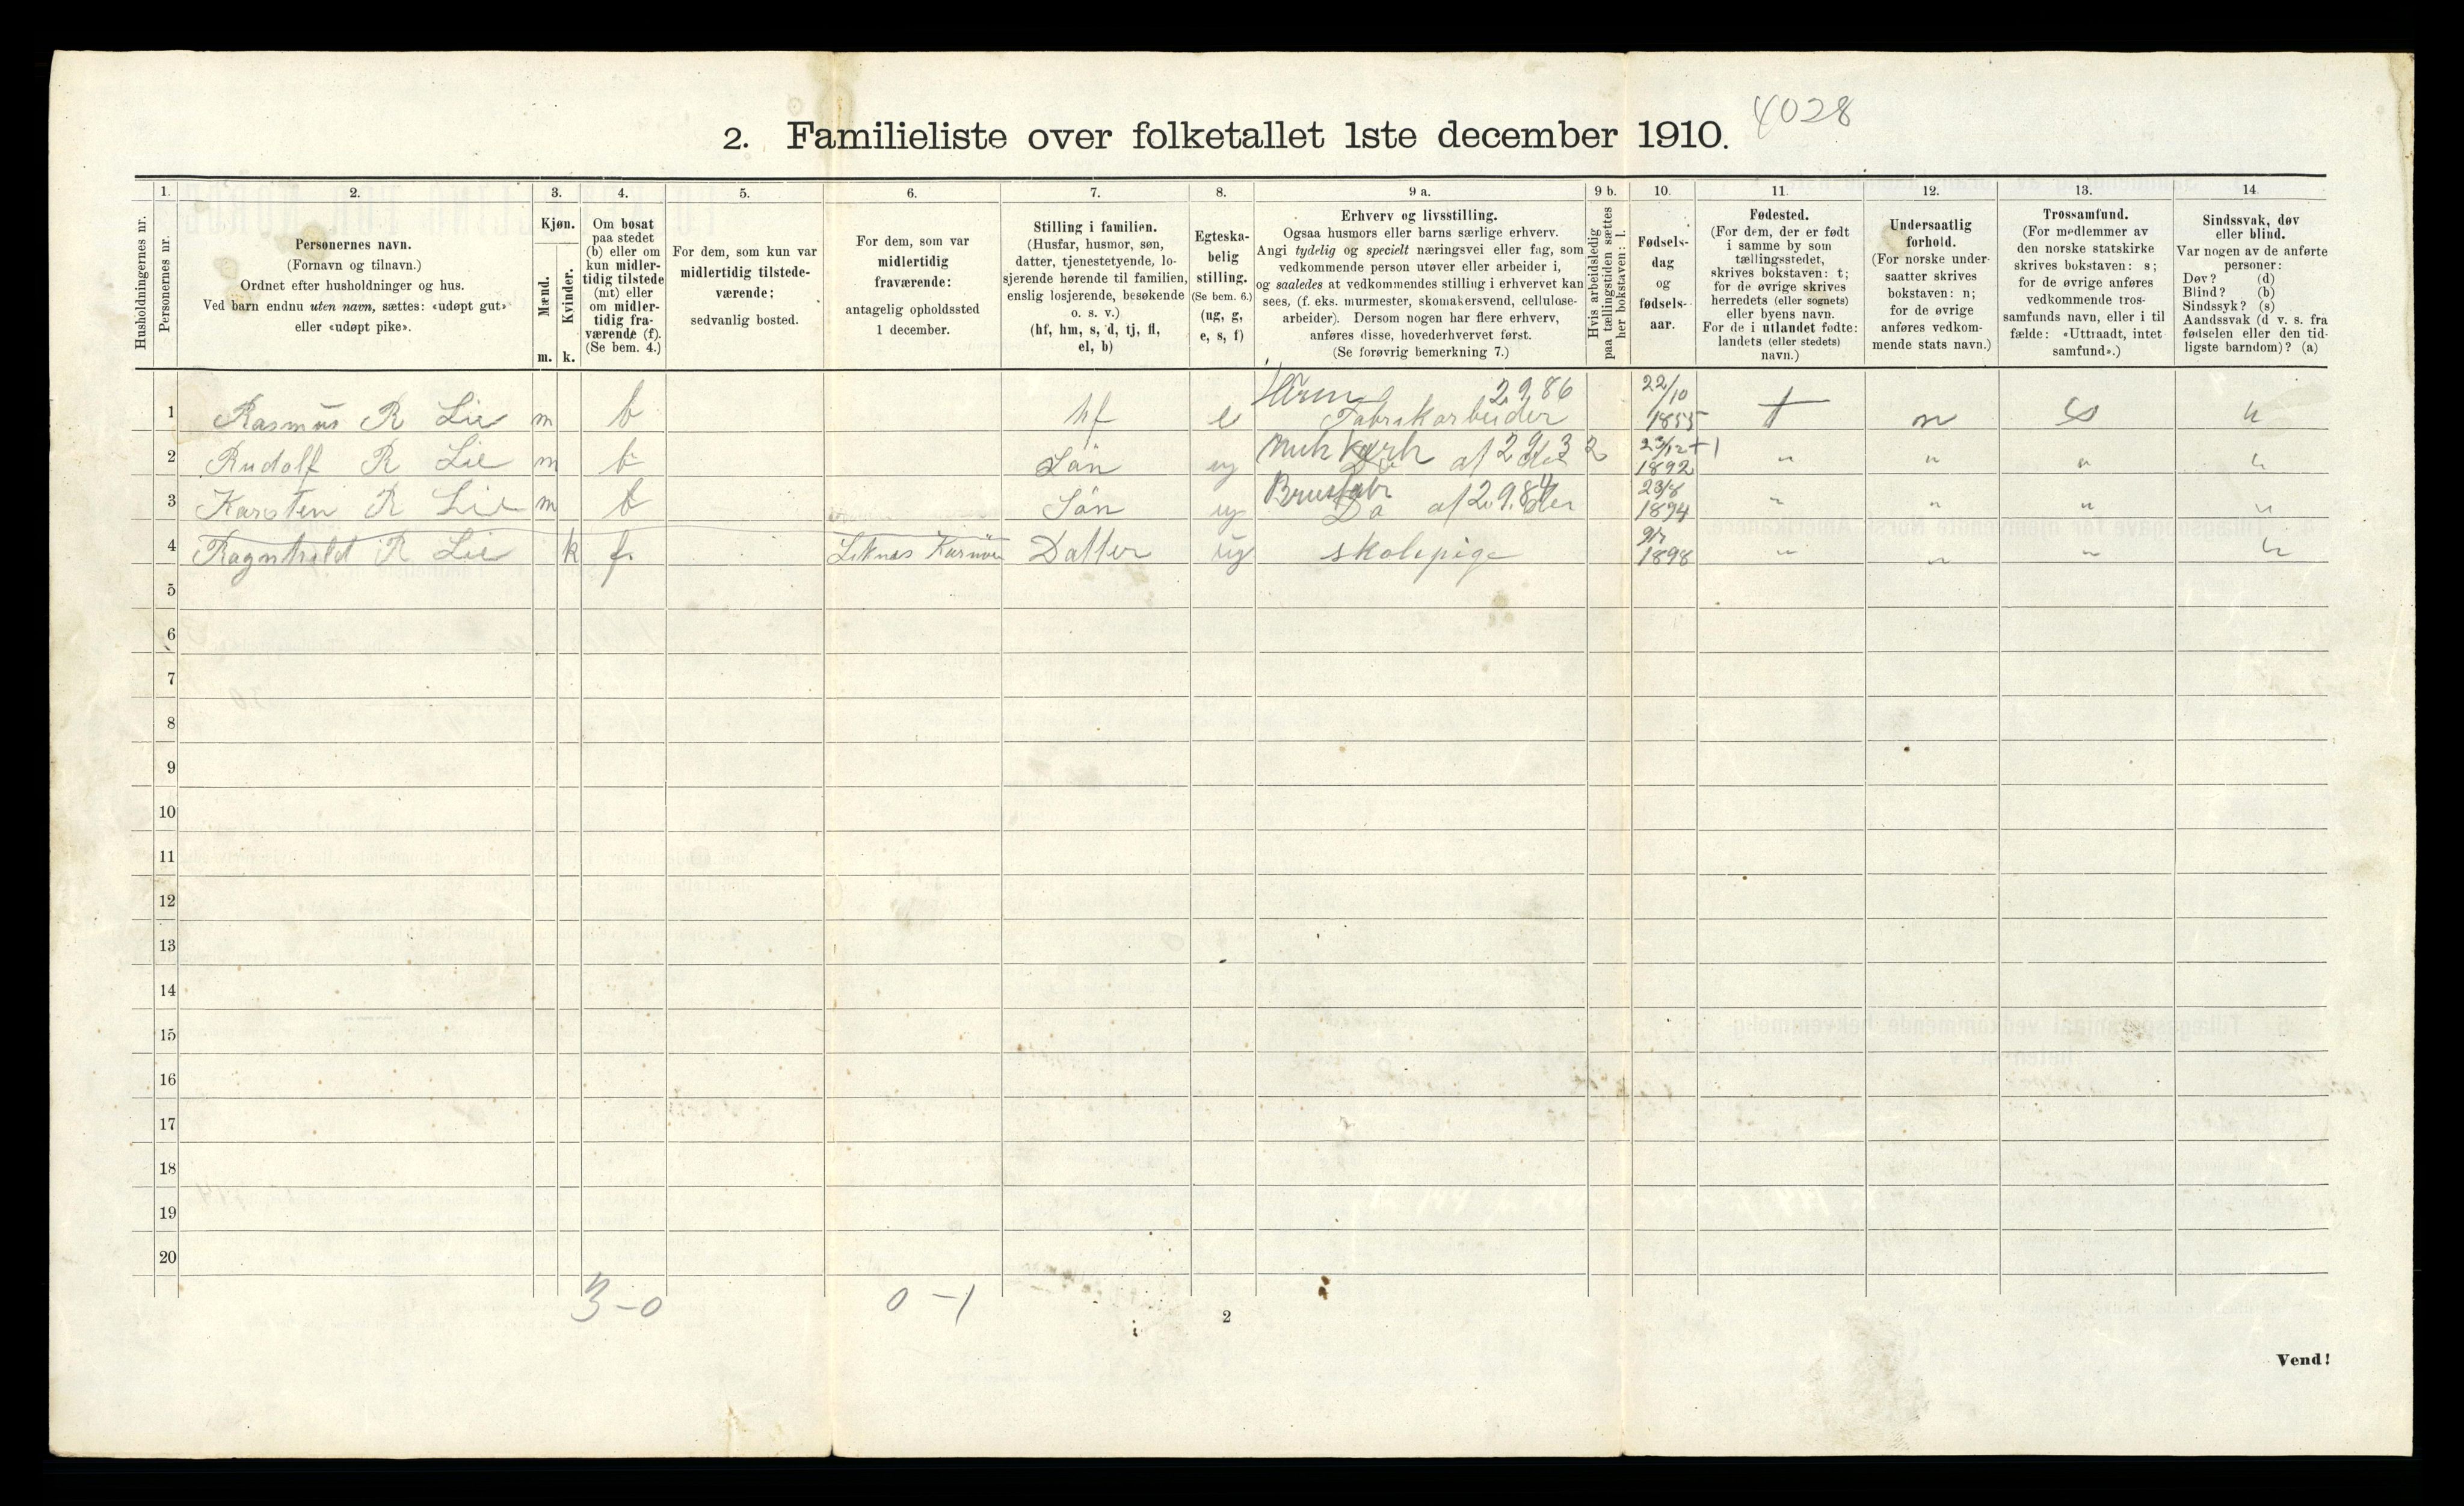 4028
2. Familieliste over folketallet 1ste december 1910.
1. 2. 3. 4. 5. 6. 7. 8. 9 a. 9 b. 10. 11. 12. 13. 14.
Husholdningernes nr.
Personernes nr.
Personernes navn.
(Fornavn og tilnavn.)
Ordnet efter husholdninger og hus.
Ved barn endnu uten navn, sættes: «udøpt gut»
eller «udøpt pike».
Kjøn.
Mænd.
Kvinder.
m. k.
Om bosat
paa stedet
(b) eller om
kun midler-
tidig tilstede
(mt) eller
om midler-
tidig fra-
værende (f).
(Se bem. 4.)
For dem, som kun var
midlertidig tilstede-
værende:
sedvanlig bosted.
For dem, som var
midlertidig
fraværende:
antagelig opholdssted
1 december.
Stilling i familien.
(Husfar, husmor, søn,
datter, tjenestetyende, lo-
sjerende hørende til familien,
enslig losjerende, besøkende
o. s. v.)
(hf, hm, s, d, tj, fl,
el, b)
Egteska-
belig
stilling.
(Se bem. 6.)
(ug, g,
e, s, f)
Erhverv og livsstilling.
Ogsaa husmors eller barns særlige erhverv.
Angi tydelig og specielt næringsvei eller fag, som
vedkommende person utøver eller arbeider i,
og saaledes at vedkommendes stilling i erhvervet kan
sees, (f. eks. murmester, skomakersvend, cellulose-
arbeider). Dersom nogen har flere erhverv,
anføres disse, hovederhvervet først.
(Se forøvrig bemerkning 7.)
Hvis arbeidsledig
paa tællingstiden sættes
her bokstaven: l.
Fødsels-
dag
og
fødsels-
aar.
Fødested.
(For dem, der er født
i samme by som
tællingsstedet,
skrives bokstaven: t;
for de øvrige skrives
herredets (eller sognets)
eller byens navn.
For de i utlandet fødte:
landets (eller stedets)
navn.)
Undersaatlig
forhold.
(For norske under-
saatter skrives
bokstaven: n;
for de øvrige
anføres vedkom-
mende stats navn.)
Trossamfund.
(For medlemmer av
den norske statskirke
skrives bokstaven: s;
for de øvrige anføres
vedkommende tros-
samfunds navn, eller i til
fælde: «Uttraadt, intet
samfund».)
Sindssvak, døv
eller blind.
Var nogen av de anførte
personer:
Døv? (d)
Blind? (b)
Sindssyk? (s)
Aandssvak (d v. s. fra
fødselen eller den tid-
ligste barndom)? (a)
2.9.86 22/10
1 Rasmus R Lie m b hf e Fabrikarbeider 1855 t n s
2 Rudolf R Lie m b Sön ug 1892 " " "
3 Karsten R Lie m b Sön ug Do 1894 " " "
4 Ragnhild R Lie k f Datter ug skolepige 1898 " " "
5
6
7
8
9
10
11
12
13
14
15
16
17
18
19
20
3-0 0-1
2
Vend!